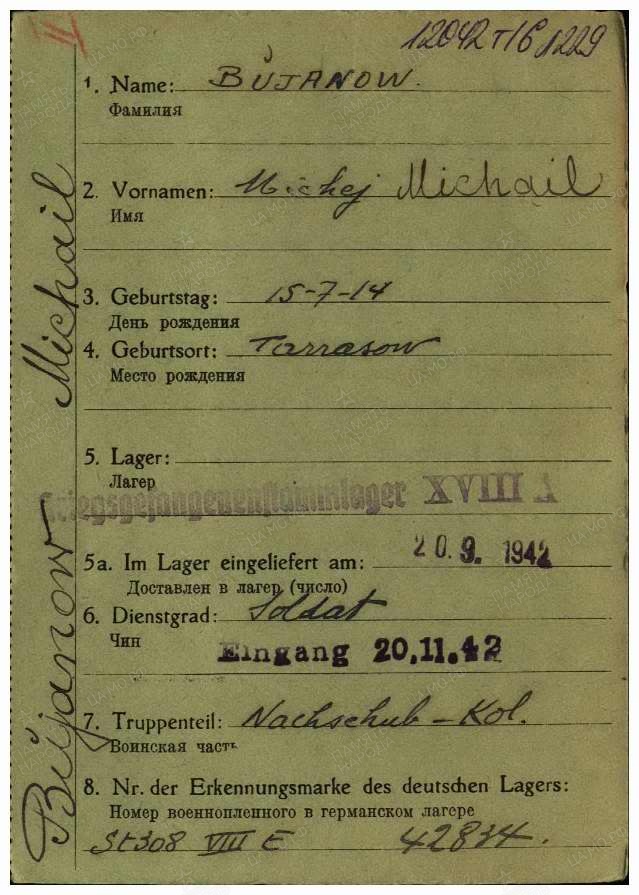 12042 т/6 1229
1. Name: BŬJANOW.
Фамилия
2. Vornamen: Michej Michail
Имя
3. Geburtstag: 15-7-14
День рождения
4. Geburtsort: Tarrasow
Место рождения
5. Lager:
Лагер
Kriegsgefangenenstammlager XVIII A
5a. Im Lager eingeliefert am: 20.9.1942
Доставлен в лагер (число)
6. Dienstgrad: Soldat
Чин
Eingang 20.11.42
7. Truppenteil: Nachschub - Kol.
Воинская часть
8. Nr. der Erkennungsmarke des deutschen Lagers:
Номер военнопленного в германском лагере
St308 VIII E 42834.
Bŭjanow Michail